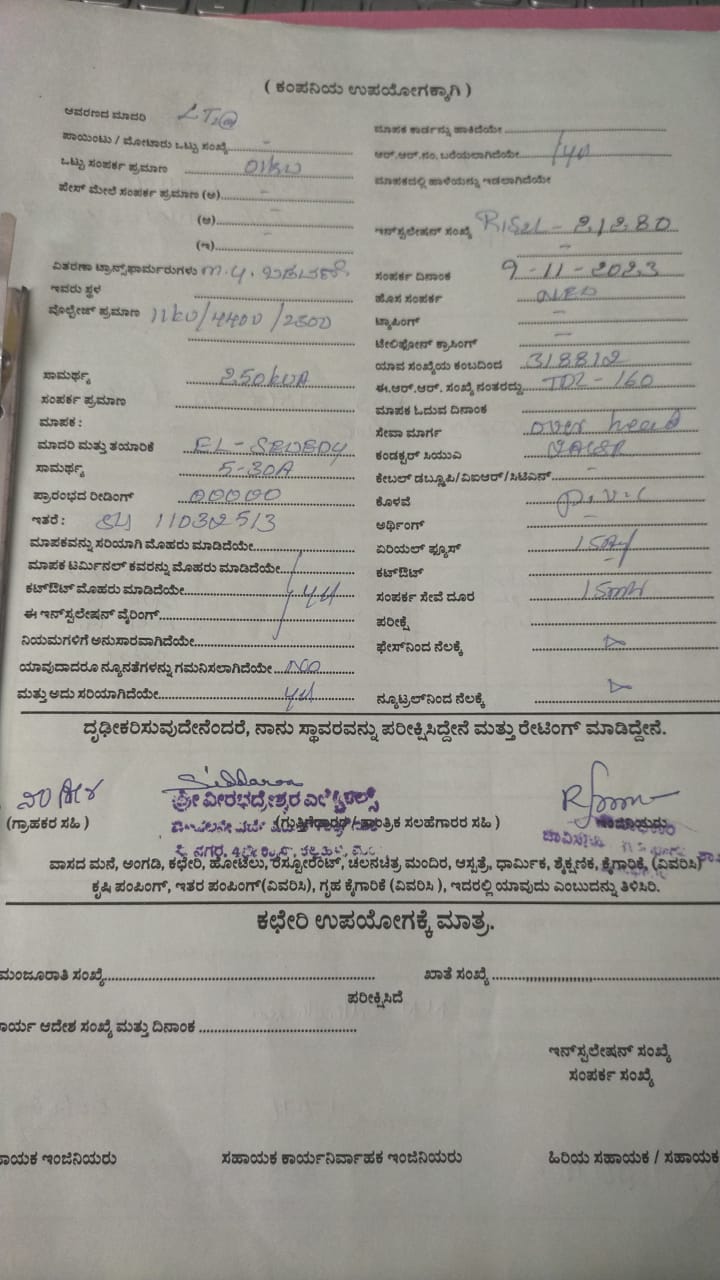 ( ಕಂಪನಿಯ ಉಪಯೋಗಕ್ಕಾಗಿ )
ಆವರಣದ ಮಾದರಿ LT2(a)
ಪಾಯಿಂಟು / ಮೋಟಾರು ಒಟ್ಟು ಸಂಖ್ಯೆ -
ಒಟ್ಟು ಸಂಪರ್ಕ ಪ್ರಮಾಣ 01kw
ಪೇಸ್ ಮೇಲೆ ಸಂಪರ್ಕ ಪ್ರಮಾಣ (ಅ) -
(ಆ) -
(ಇ) -
ವಿತರಣಾ ಟ್ರಾನ್ಸ್‌ಫಾರ್ಮರುಗಳು
ಇವರು ಸ್ಥಳ
ವೊಲ್ಟೇಜ್ ಪ್ರಮಾಣ 11kv/440v/230v
ಸಾಮರ್ಥ್ಯ 250kVA
ಸಂಪರ್ಕ ಪ್ರಮಾಣ
ಮಾಪಕ :
ಮಾದರಿ ಮತ್ತು ತಯಾರಿಕೆ EL-SEWEDY
ಸಾಮರ್ಥ್ಯ 5-30A
ಪ್ರಾರಂಭದ ರೀಡಿಂಗ್ 00000
ಇತರೆ : 11032513
ಮಾಪಕವನ್ನು ಸರಿಯಾಗಿ ಮೊಹರು ಮಾಡಿದೆಯೇ
ಮಾಪಕ ಟರ್ಮಿನಲ್ ಕವರನ್ನು ಮೊಹರು ಮಾಡಿದೆಯೇ
ಕಟ್‌ಔಟ್ ಮೊಹರು ಮಾಡಿದೆಯೇ
ಈ ಇನ್‌ಸ್ಟಲೇಷನ್ ವೈರಿಂಗ್
ನಿಯಮಗಳಿಗೆ ಅನುಸಾರವಾಗಿದೆಯೇ
ಯಾವುದಾದರೂ ನ್ಯೂನತೆಗಳನ್ನು ಗಮನಿಸಲಾಗಿದೆಯೇ NO
ಮತ್ತು ಅದು ಸರಿಯಾಗಿದೆಯೇ
ಮಾಪಕ ಕಾರ್ಡನ್ನು ಹಾಕಿದೆಯೇ
ಆರ್.ಆರ್.ನಂ. ಬರೆಯಲಾಗಿದೆಯೇ
ಮಾಪಕದಲ್ಲಿ ಹಾಳೆಯನ್ನು ಇಡಲಾಗಿದೆಯೇ
ಇನ್‌ಸ್ಟಲೇಷನ್ ಸಂಖ್ಯೆ 21280
ಸಂಪರ್ಕ ದಿನಾಂಕ 9-11-2023
ಹೊಸ ಸಂಪರ್ಕ
ಟ್ಯಾಪಿಂಗ್ -
ಟೇಲಿಫೋನ್ ಕ್ರಾಸಿಂಗ್ -
ಯಾವ ಸಂಖ್ಯೆಯ ಕಂಬದಿಂದ 318812
ಈ.ಆರ್.ಆರ್. ಸಂಖ್ಯೆ ನಂತರದ್ದು
ಮಾಪಕ ಓದುವ ದಿನಾಂಕ
ಸೇವಾ ಮಾರ್ಗ over head
ಕಂಡಕ್ಟರ್ ಸಿಯುಎ
ಕೇಬಲ್ ಡಬ್ಲೂಪಿ/ವಿಐಆರ್/ಸಿಟಿಎಸ್ -
ಕೊಳವೆ p.v.c
ಅರ್ಥಿಂಗ್ -
ಏರಿಯಲ್ ಫ್ಯೂಸ್
ಕಟ್‌ಔಟ್
ಸಂಪರ್ಕ ಸೇವೆ ದೂರ
ಪರೀಕ್ಷೆ
ಫೇಸ್‌ನಿಂದ ನೆಲಕ್ಕೆ
ನ್ಯೂಟ್ರಲ್‌ನಿಂದ ನೆಲಕ್ಕೆ
ದೃಢೀಕರಿಸುವುದೇನೆಂದರೆ, ನಾನು ಸ್ಥಾವರವನ್ನು ಪರೀಕ್ಷಿಸಿದ್ದೇನೆ ಮತ್ತು ರೇಟಿಂಗ್ ಮಾಡಿದ್ದೇನೆ.
ಶ್ರೀ ವೀರಭದ್ರೇಶ್ವರ
(ಗ್ರಾಹಕರ ಸಹಿ ) (ಗುತ್ತಿಗೆದಾರರ / ತಾಂತ್ರಿಕ ಸಲಹೆಗಾರರ ಸಹಿ )
ವಾಸದ ಮನೆ, ಅಂಗಡಿ, ಕಛೇರಿ, ಹೋಟೆಲು, ರೆಸ್ಟೋರೆಂಟ್, ಚಲನಚಿತ್ರ ಮಂದಿರ, ಆಸ್ಪತ್ರೆ, ಧಾರ್ಮಿಕ, ಶೈಕ್ಷಣಿಕ, ಕೈಗಾರಿಕೆ, (ವಿವರಿಸಿ)
ಕೃಷಿ ಪಂಪಿಂಗ್, ಇತರ ಪಂಪಿಂಗ್(ವಿವರಿಸಿ), ಗೃಹ ಕೈಗಾರಿಕೆ (ವಿವರಿಸಿ ), ಇದರಲ್ಲಿ ಯಾವುದು ಎಂಬುದನ್ನು ತಿಳಿಸಿರಿ.
ಕಛೇರಿ ಉಪಯೋಗಕ್ಕೆ ಮಾತ್ರ.
ಮಂಜೂರಾತಿ ಸಂಖ್ಯೆ ಖಾತೆ ಸಂಖ್ಯೆ
ಪರೀಕ್ಷಿಸಿದೆ
ಾರ್ಯ ಆದೇಶ ಸಂಖ್ಯೆ ಮತ್ತು ದಿನಾಂಕ
ಇನ್‌ಸ್ಟಲೇಷನ್ ಸಂಖ್ಯೆ
ಸಂಪರ್ಕ ಸಂಖ್ಯೆ
ಾಯಕ ಇಂಜಿನಿಯರು ಸಹಾಯಕ ಕಾರ್ಯನಿರ್ವಾಹಕ ಇಂಜಿನಿಯರು ಹಿರಿಯ ಸಹಾಯಕ / ಸಹಾಯಕ